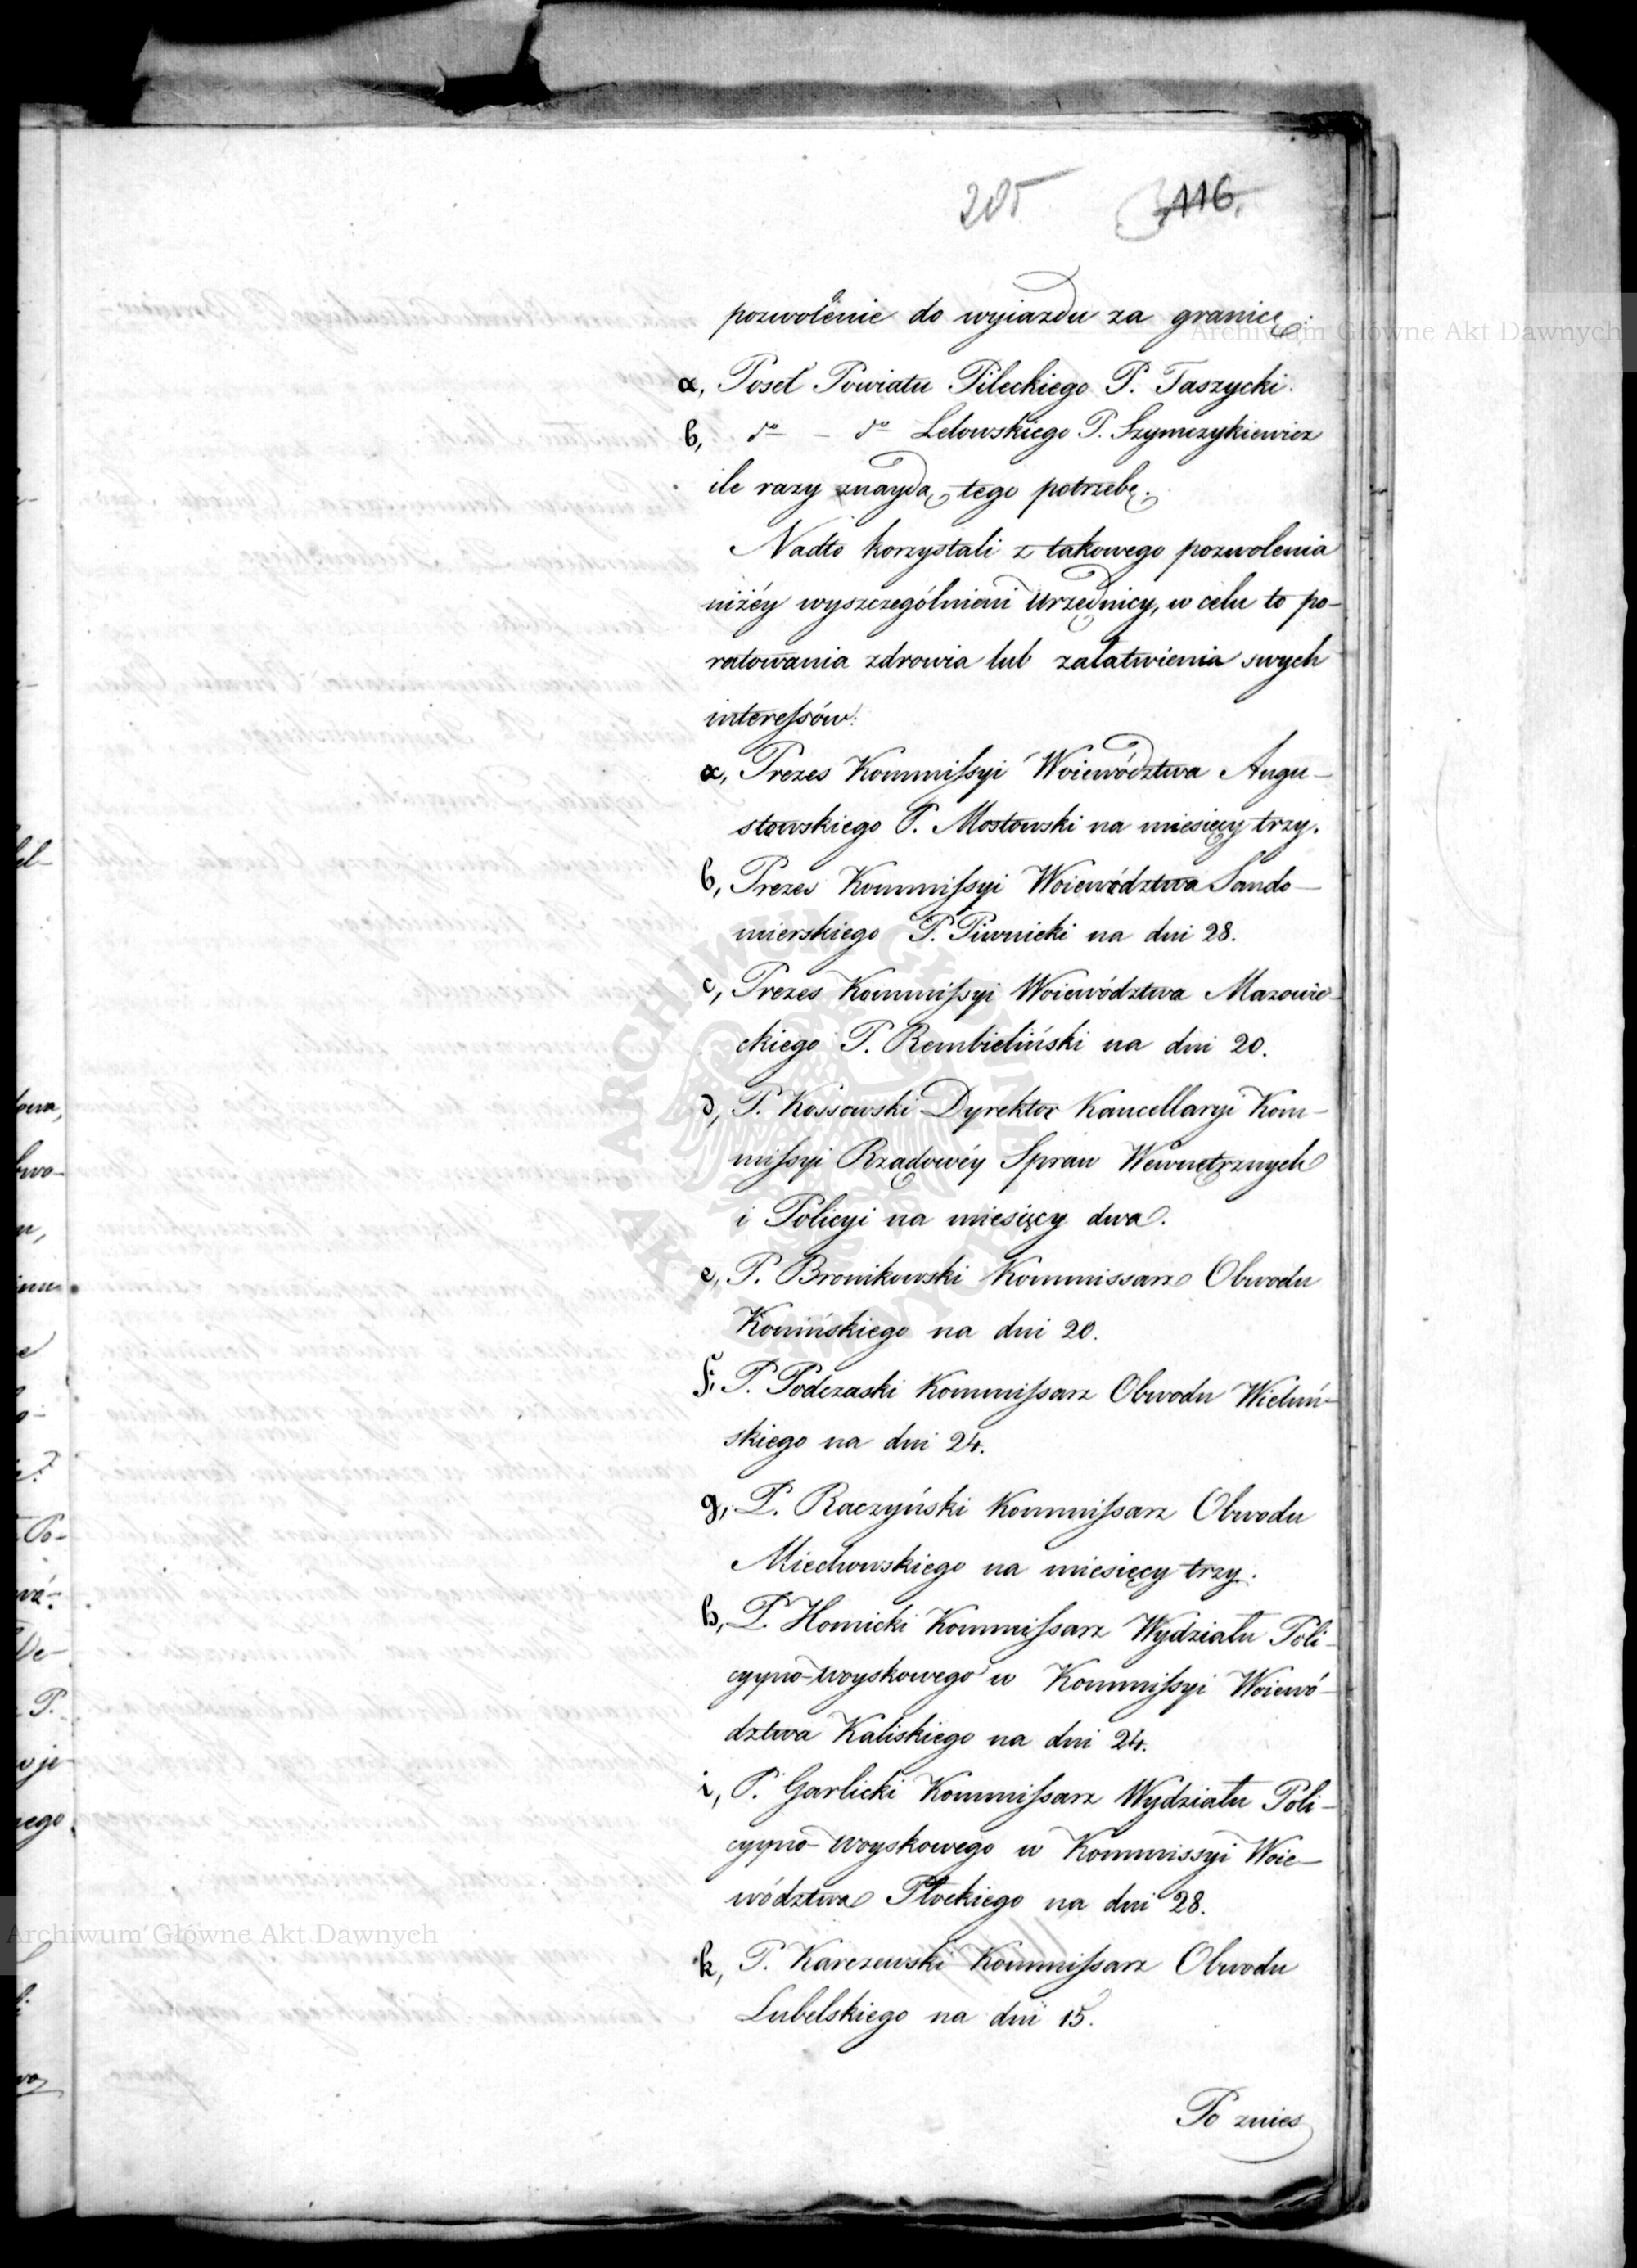 205 116.
pozwolenie do wyiazdu za granicę:
a, Poseł Powiatu Pileckiego P. Taszycki.
b, do — do Lelowskiego P. Szymczykiewicz
ile razy znaydą tego potrzebę.
Nadto korzystali z takowego pozwolenia
niżéy wyszczególnieni Urzędnicy, w celu to po-
ratowania zdrowia lub załatwienia swych
interessów:
a, Prezes Kommissyi Woiewództwa Augu-
stowskiego P. Mostowski na miesięcy trzy.
b, Prezes Kommissyi Woiewództwa Sando-
mierskiego P. Piwnicki na dni 28.
c, Prezes Kommissyi Woiewództwa Mazowie-
ckiego P. Rembieliński na dni 20.
d, P. Kossowski Dyrektor Kancellaryi Kom-
missyi Rządowéy Spraw Wewnętrznych
i Policyi na miesięcy dwa.
e, P. Bronikowski Kommissarz Obwodu
Konińskiego na dni 20.
f, P. Podczaski Kommissarz Obwodu Wieluń-
skiego na dni 24.
g, P. Raczyński Kommissarz Obwodu
Miechowskiego na miesięcy trzy.
h, P. Homicki Kommissarz Wydziału Poli-
cyyno-woyskowego w Kommissyi Woiewó-
dztwa Kaliskiego na dni 24.
i, P. Garlicki Kommissarz Wydziału Poli-
cyyno-woyskowego w Kommissyi Woie-
wództwa Płockiego na dni 28.
k, P. Karczewski Kommissarz Obwodu
Lubelskiego na dni 15.
Po znies
Archiwum Główne Akt Dawnych
Archiwum Główne Akt Dawnych
ARCHIWUM GŁÓWNE AKT DAWNYCH